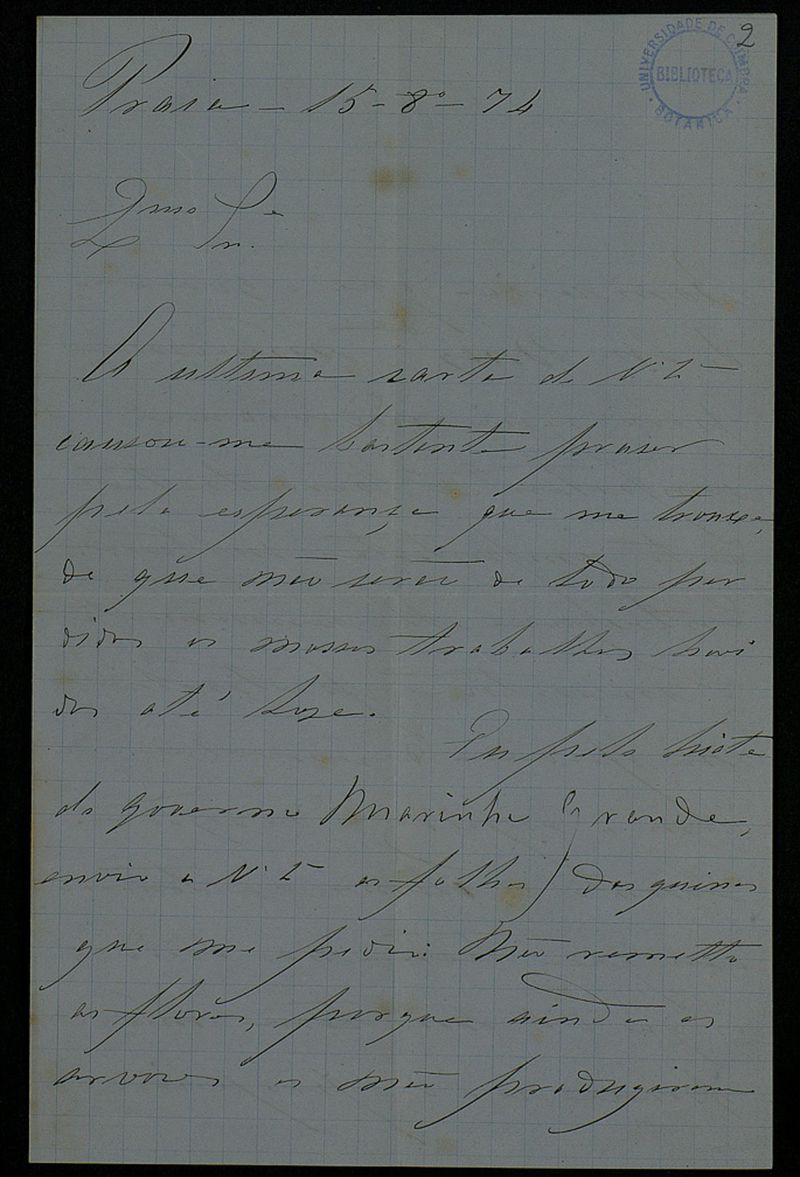 2
UNIVERSIDADE DE COIMBRA
BIBLIOTECA
BOTANICA
Praia - 15 - 8º - 74
Illmo Sr
A ultima carta de V. Eª
causou-me bastante praser
pela esperança que me trouxe,
de que não serão de todo per
didos os nossos trabalhos havi
dos até hoje.
pelo hiate
do governo Marinha Grande,
envio a V. Eª as folhas das quinas
que me pediu. Não remetto
as flores, porque ainda as
arvores as não produziram